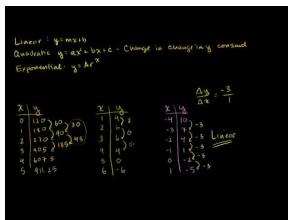 Linear: y=mx+b
Quadratic y=ax²+bx+c - Change in change in y
Exponential: y=Ar^x
Δy/Δx = -3/1
x | y
0 120
1 180
2 270
3 405
4 607.5
5 911.25
60
90
135
30
45
x | y
1 4
2 6
3 6
4 4
6 -6
2
x | y
-4 10
-3 7
-2 4
-1 1
0 -2
1 -5
-3
-3
-3
-3
-3
Linear